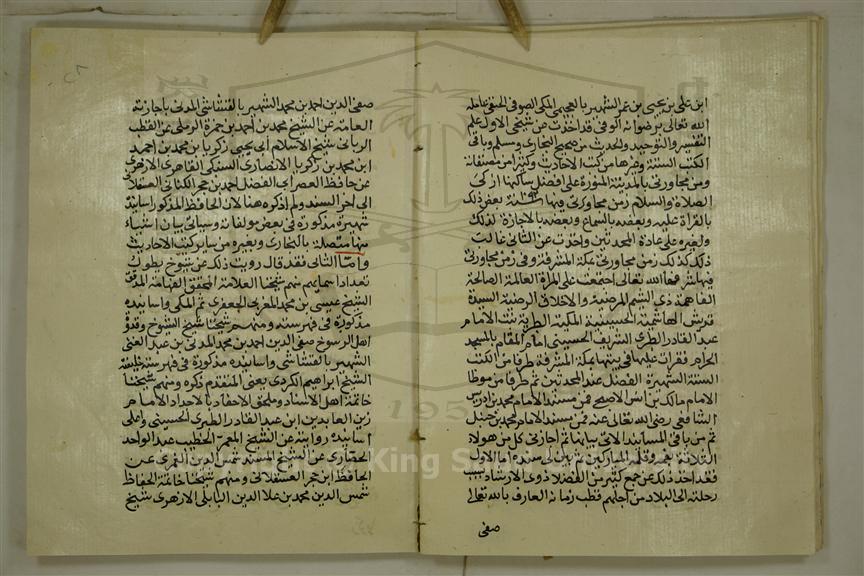 ابن علي بن يحيى بن عمر الشهير بالعجيمي المكي الصوفي الحنفي عامله
الله تعالى برضوانه الوفي قد اخذت عن شيخي الاول علم
التفسير والتوحيد والحديث من صحيح البخاري ومسلم وباقي
الكتب الستة وغيرها من كتب الاحاديث وكثيرا من مصنفاته
ومن مجاورتي بالمدينة المنورة على افضل ساكنها ازكى
الصلاة والسلام زمن مجاورتي فيها سنة بعض ذلك
بالقراة عليه وبعضه بالسماع وبعضه بالاجازة لذلك
ولغيره على عادة المحدثين واخذت عن الثاني غالب
ذلك كذلك زمن مجاورتي بمكة المشرفة وفي زمن مجاورتي
فيها شرفها الله تعالى اجتمعت على المراة العالمة الصالحة
الفاهمة ذي الشيم المرضية والاخلاق الرضية السيدة
قريش الهاشمية الحسينية المكية الطبرية بنت الامام
عبد القادر الطبري الشريف الحسيني امام المقام بالمسجد
الحرام فقرات عليها في بيتها بمكة المشرفة طرفا من الكتب
الستة الشهيرة الفضل عند المحدثين ثم طرفا من موطا
الامام مالك بن انس الاصبحي ثم مسند الامام محمد بن ادريس
الشافعي رضي الله تعالى عنه ثم مسند الامام محمد بن حنبل
ثم من باقي المسانيد الاتي بيانها ثم اجازني كل من هولاء
الثلاثة بفمه وقلمه المباركين بمروياته في سنده اما الاول
فقد اخذ ذلك عن جمع كثير من الفضلا ذوي الارشاد بسبب
رحلته الى البلاد من اجلهم قطب زمانه العارف بالله تعالى
صفي
صفي الدين احمد بن محمد الشهير بالقشاشي المدني باجازته
العامة عن الشيخ محمد بن احمد بن حمزة الرملي عن القطب
الرباني شيخ الاسلام ابي يحيى زكريا بن محمد بن احمد
ابن محمد بن زكريا الانصاري السنكي القاهري الازهري
عن حافظ العصر ابي الفضل احمد بن حجر الكناني العسقلاني
الى اخر السند ولم اذكره هنا لان الحافظ المذكور اسانيده
شهيرة مذكورة في بعض مولفاته وسياتي بيان اشياء
منها متصلة بالبخاري وبغيره من ساير كتب الاحاديث
واما الثاني فقد قال رويت ذلك عن شيوخ يطول
تعداد اسمائهم منهم شيخنا العلامة المحقق الفهامة المدقق
الشيخ عيسى بن محمد المغربي الجعفري ثم المكي واسانيده
مذكورة في فهرسته ومنهم شيخنا شيخ الشيوخ وقدوة
اهل الرسوخ صفي الدين احمد بن محمد المدني بن عبد الغني
الشهير بالقشاشي واسانيده مذكورة في فهرسته خليفته
الشيخ ابراهيم الكردي يعني المتقدم ذكره ومنهم شيخنا
خاتمة اهل الاسناد وملحق الاحفاد بالاجداد الامام
زين العابدين ابن عبد القادر الطبري الحسيني واعلى
اسانيده روايته عن الشيخ المعمر الخطيب عبد الواحد
الحصاري عن الشيخ المسند شمس الدين الغمري عن
الحافظ ابن حجر العسقلاني ومنهم شيخنا خاتمة الحفاظ
شمس الدين محمد بن علا الدين البابلي الازهري شيخ